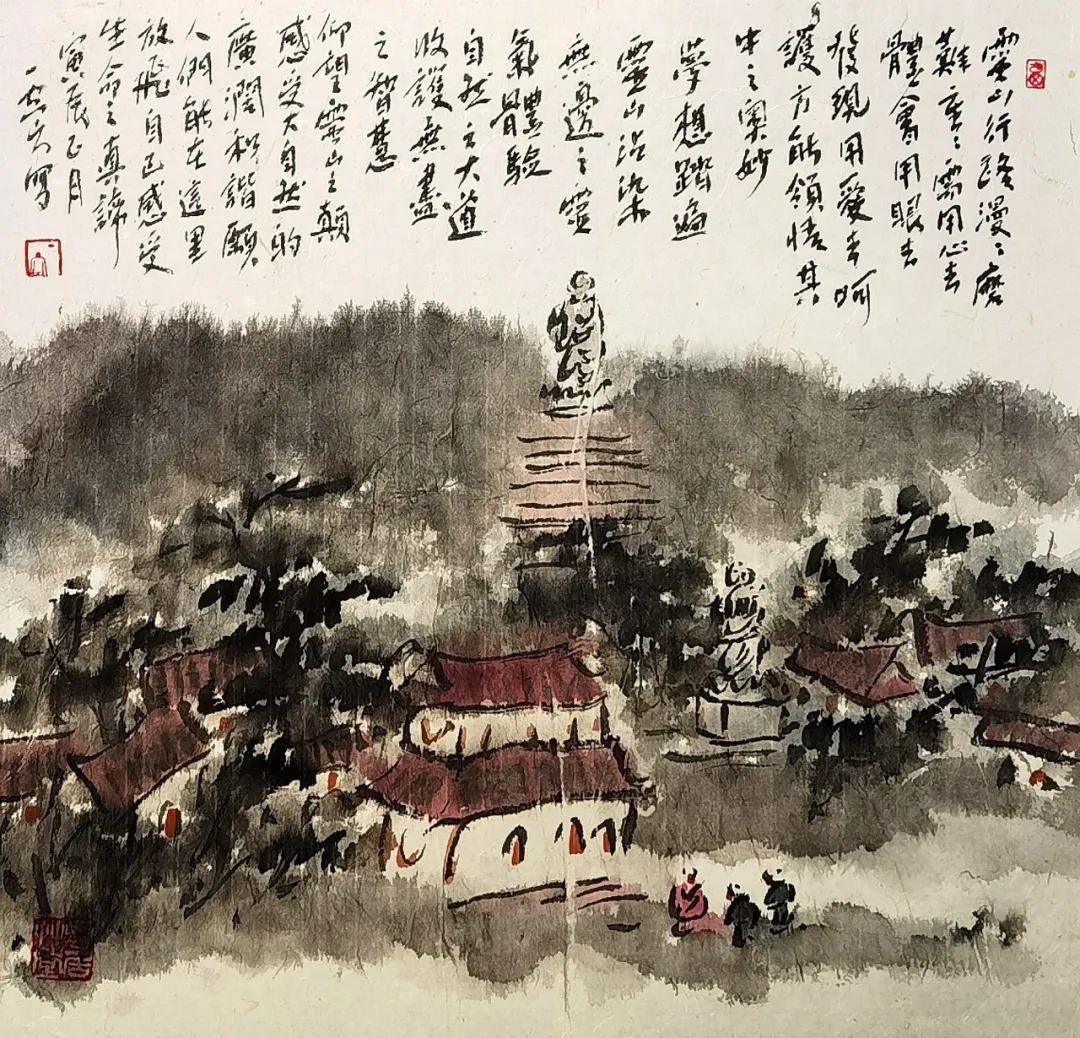 靈山行路漫々磨
難重々需用心去
體會用眼去
發現用愛去呵
護方能領悟其
中之奧妙
夢想踏遍
靈山沾染
無邊之靈
氣體驗
自然之大道
收護無盡
之智慧
仰望靈山之顛
感受大自然的
廣濶和諧願
人們能在這里
放飛自己感受
生命之真諦
寅辰正月